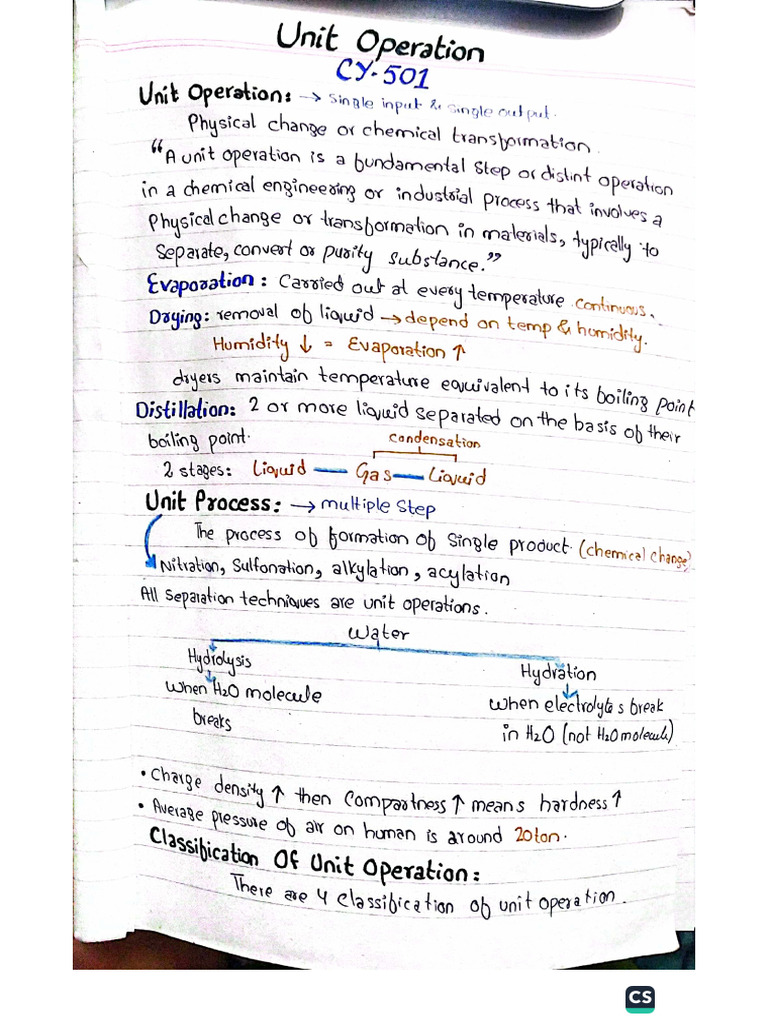 Unit Operation
CY-501
Unit Operation: → Single input & single output.
Physical change or chemical transformation.
"A unit operation is a fundamental step or distint operation
in a chemical engineering or industrial process that involves a
Physical change or transformation in materials, typically to
Separate, convert or purity substance."
Evaporation: Carried out at every temperature continuous.
Drying: removal of liquid → depend on temp & humidity.
Humidity ↓ = Evaporation ↑
dryers maintain temperature equivalent to its boiling point
Distillation: 2 or more liquid separated on the basis of their
boiling point.
condensation
2 stages: Liquid — Gas — Liquid
Unit Process: → multiple step
The process of formation of single product. (chemical change)
Nitration, Sulfonation, alkylation, acylation
All separation techniques are unit operations.
Water
Hydrolysis
When H2O molecule
breaks
Hydration
when electrolytes break
in H2O (not H2O molecule)
• Charge density ↑ then Compartness ↑ means hardness ↑
• Average pressure of air on human is around 20 ton.
Classification Of Unit Operation:
There are 4 classification of unit operation.
CS